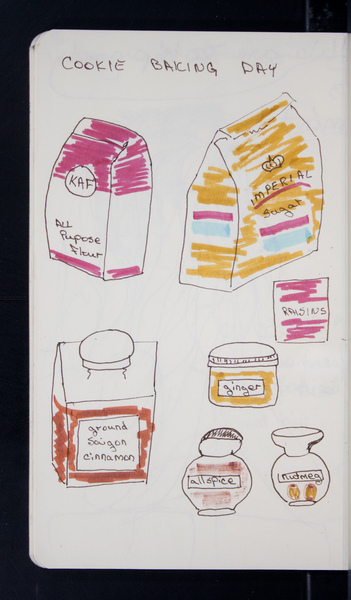 COOKIE BAKING DAY
KAF
ALL
Purpose
Flour
IMPERIAL
Sugar
RAISINS
ginger
ground
Saigon
cinnamon
allspice
nutmeg